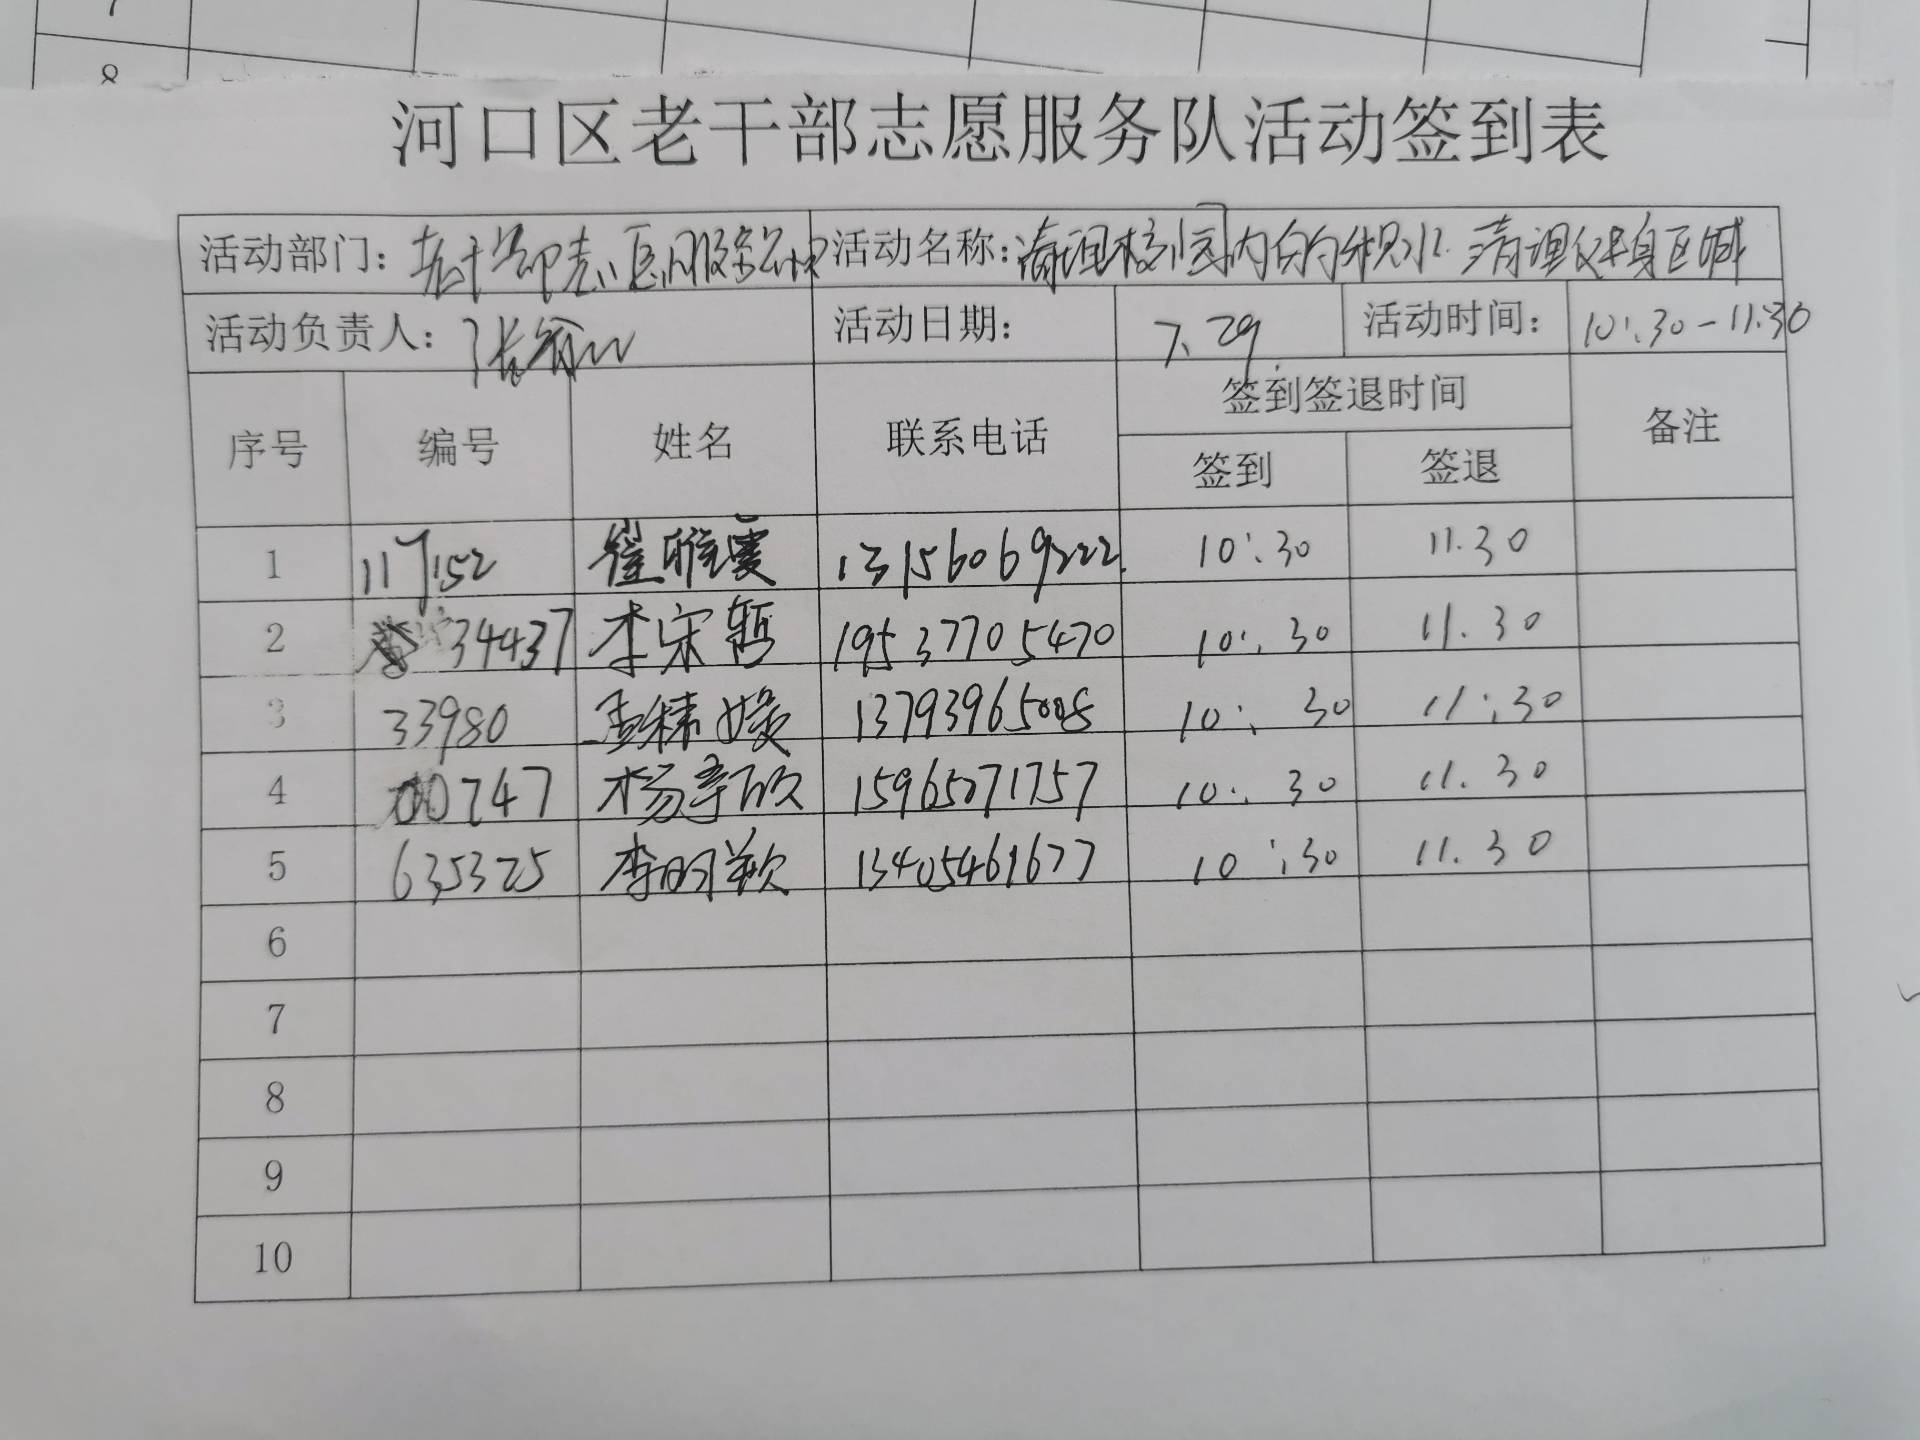 7
8
河口区老干部志愿服务队活动签到表
活动部门: 老干部志愿服务 活动名称: 清理校园内的积水 清理健身区域
活动负责人: 张 活动日期: 7.29 活动时间: 10:30-11:30
序号 编号 姓名 联系电话 签到签退时间 备注
签到 签退
1 117152 崔雅雯 13156069222 10:30 11.30
2 34437 李宋哲 19537705470 10:30 11.30
3 33980 孟 13793965008 10:30 11:30
4 00747 杨 欣 15965271757 10:30 11.30
5 635325 李明颖 13405461677 10:30 11.30
6
7
8
9
10